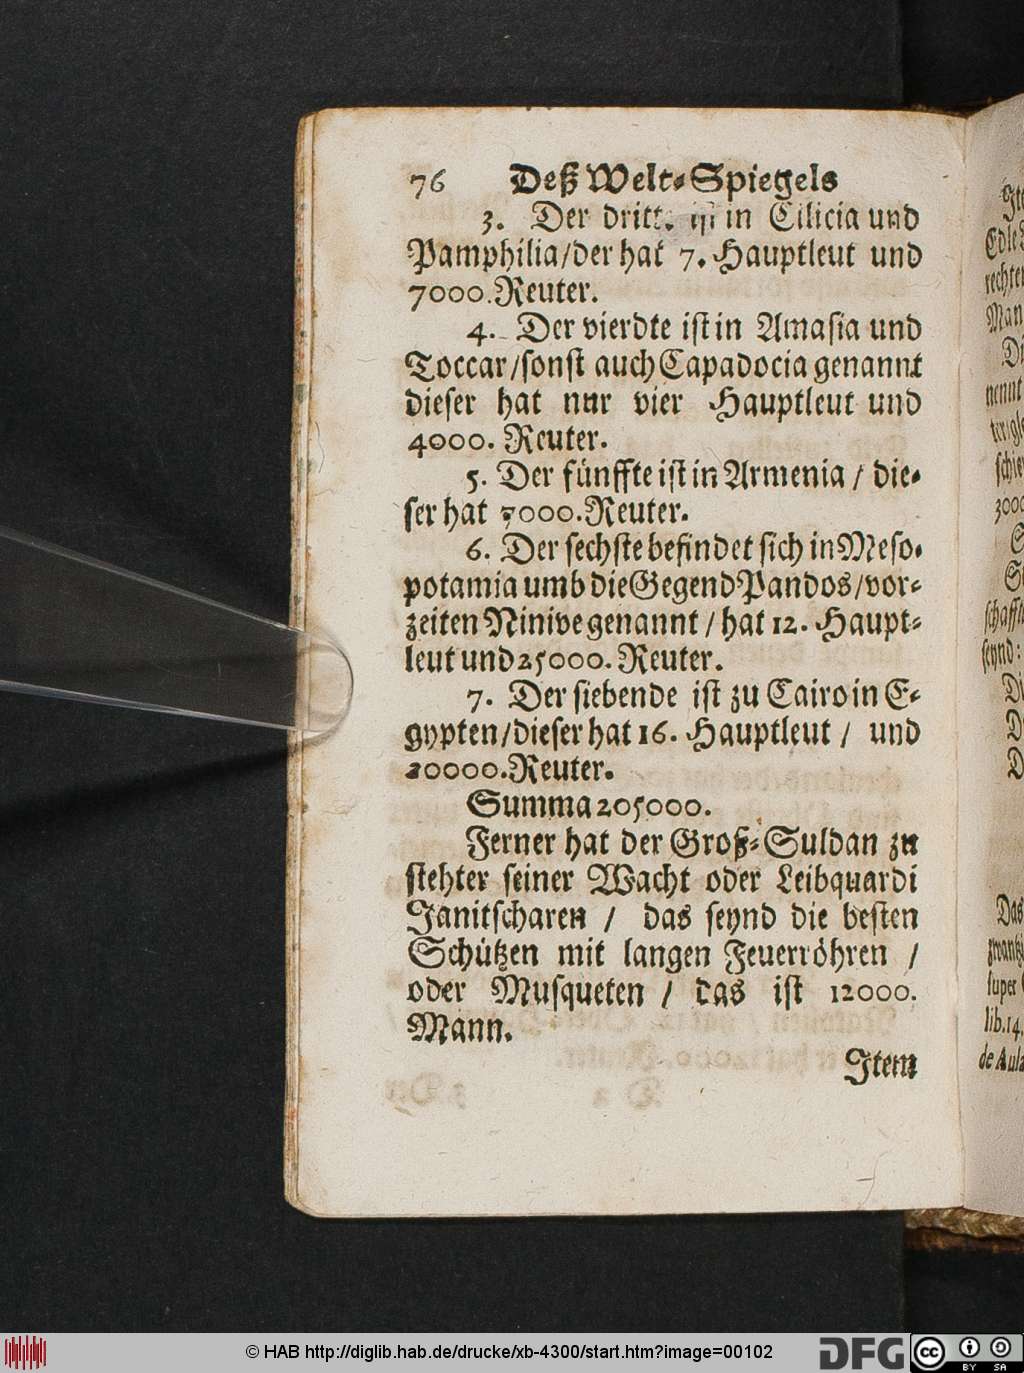 76 Deß Welt-Spiegels
3. Der dritt. ist in Cilicia und
Pamphilia/der hat 7. Hauptleut und
7000. Reuter.
4. Der vierdte ist in Amasia und
Toccar/sonst auch Capadocia genannt
dieser hat nur vier Hauptleut und
4000. Reuter.
5. Der fünffte ist in Armenia / die-
ser hat 7000. Reuter.
6. Der sechste befindet sich in Meso-
potamia umb die Gegend Pandos/vor-
zeiten Ninive genannt / hat 12. Haupt-
leut und 25000. Reuter.
7. Der siebende ist zu Cairo in E-
gypten/dieser hat 16. Hauptleut / und
20000. Reuter.
Summa 205000.
Ferner hat der Groß-Suldan zu
stehter seiner Wacht oder Leibquardi
Janitscharen / das seynd die besten
Schützen mit langen Feuerröhren /
oder Musqueten / das ist 12000.
Mann.
Item
© HAB http://diglib.hab.de/drucke/xb-4300/start.htm?image=00102
DFG
cc BY SA